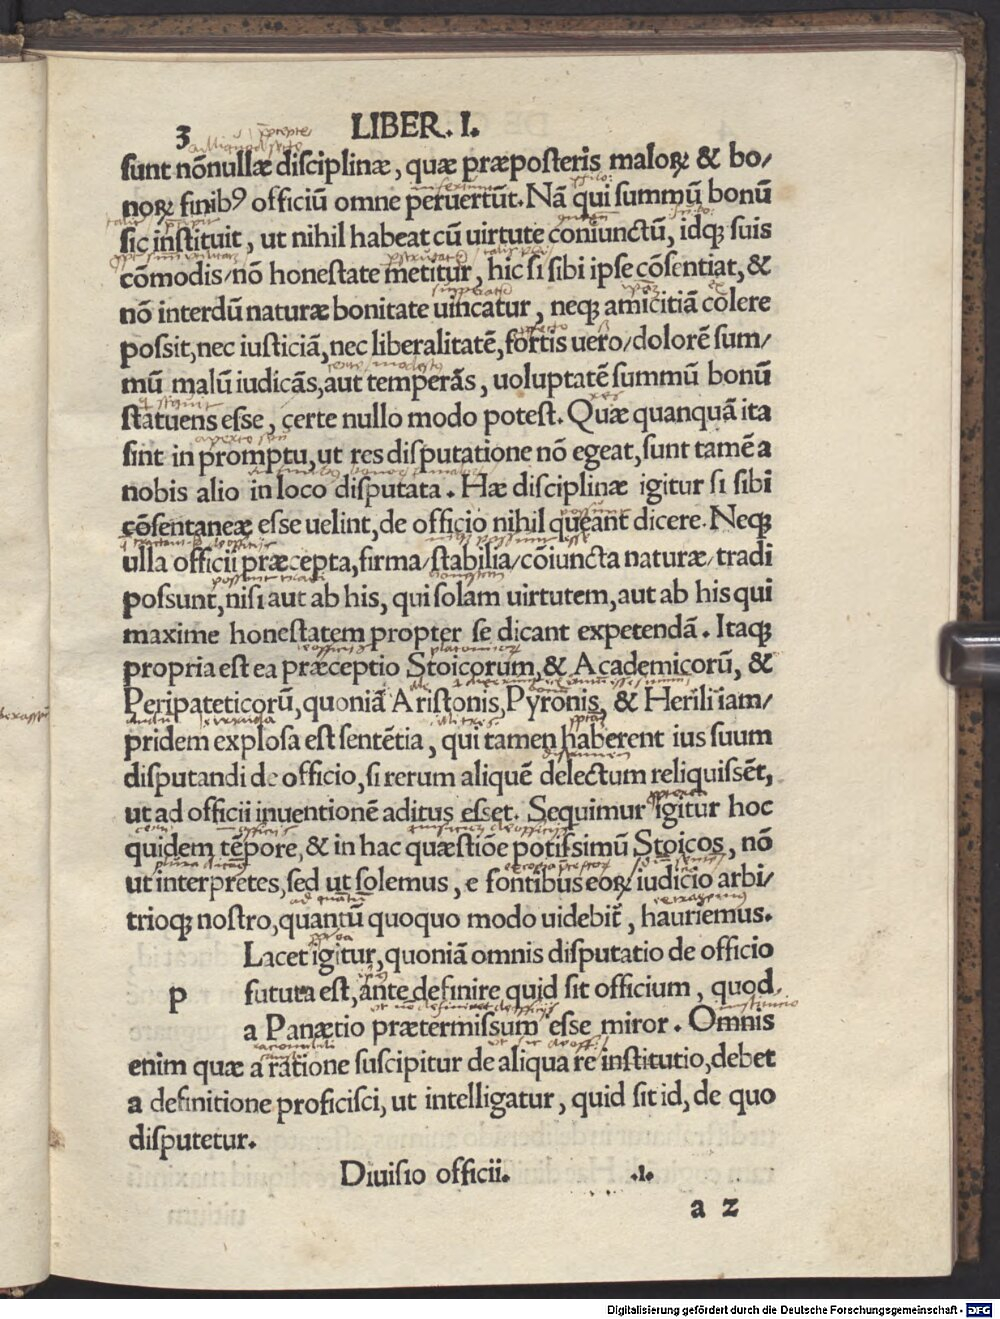 3 LIBER. I.
sunt nōnullæ disciplinæ, quæ præposteris maloꝝ & bo/
noꝝ finibꝰ officiū omne peruertūt. Nā qui summū bonū
sic instituit, ut nihil habeat cū uirtute coniunctū, idqꝫ suis
cōmodis/nō honestate metitur, hic si sibi ipse cōsentiat, &
nō interdū naturæ bonitate uincatur, neqꝫ amicitiā colere
possit, nec iusticiā, nec liberalitatē, fortis uero/dolorē sum/
mū malū iudicās, aut temperās, uoluptatē summū bonū
statuens esse, certe nullo modo potest. Quæ quanquā ita
sint in promptu, ut res disputatione nō egeat, sunt tamē a
nobis alio in loco disputata. Hæ disciplinæ igitur si sibi
cōsentaneæ esse uelint, de officio nihil queant dicere. Neqꝫ
ulla officii præcepta, firma/stabilia/cōiuncta naturæ/tradi
possunt, nisi aut ab his, qui solam uirtutem, aut ab his qui
maxime honestatem propter se dicant expetendā. Itaqꝫ
propria est ea præceptio Stoicorum, & Academicorū, &
Peripateticorū, quoniā Aristonis, Pyronis, & Herili iam/
pridem explosa est sentētia, qui tamen haberent ius suum
disputandi de officio, si rerum aliquē delectum reliquissēt,
ut ad officii inuentionē aditus esset. Sequimur igitur hoc
quidem tēpore, & in hac quæstiōe potissimū Stoicos, nō
ut interpretes, sed ut solemus, e fontibus eoꝝ/iudicio arbi/
trioqꝫ nostro, quantū quoquo modo uidebit̄, hauriemus.
Lacet igitur, quoniā omnis disputatio de officio
p futura est, ante definire quid sit officium, quod
a Panætio prætermissum esse miror. Omnis
enim quæ a ratione suscipitur de aliqua re institutio, debet
a definitione proficisci, ut intelligatur, quid sit id, de quo
disputetur.
Diuisio officii. .I.
a 2
Digitalisierung gefördert durch die Deutsche Forschungsgemeinschaft - DFG